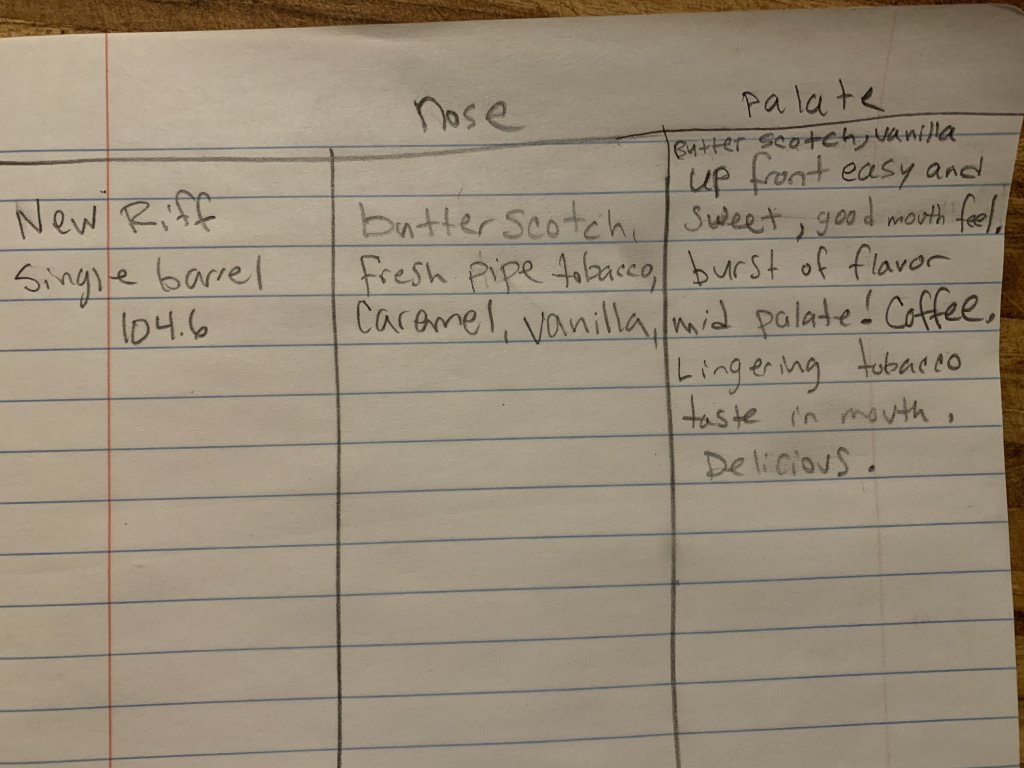 nose
palate
New Riff
Single barrel
104.6
butterscotch,
fresh pipe tobacco,
Caramel, vanilla,
Butter scotch, vanilla
up front easy and
sweet, good mouth feel.
burst of flavor
mid palate! Coffee.
Lingering tobacco
taste in mouth.
Delicious.